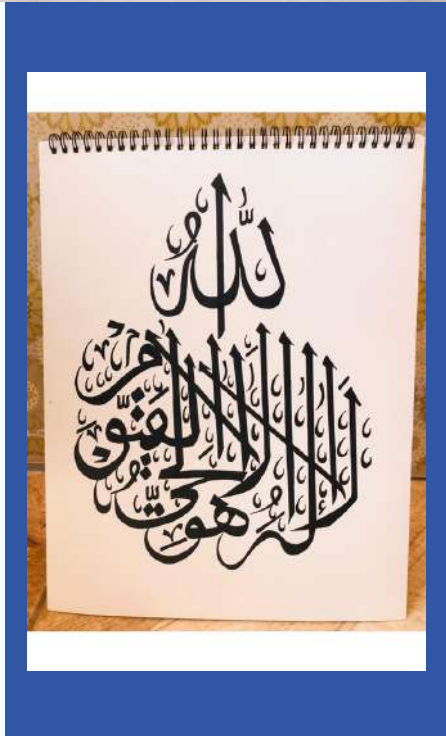 الله
لا إله إلا هو الحي القيوم